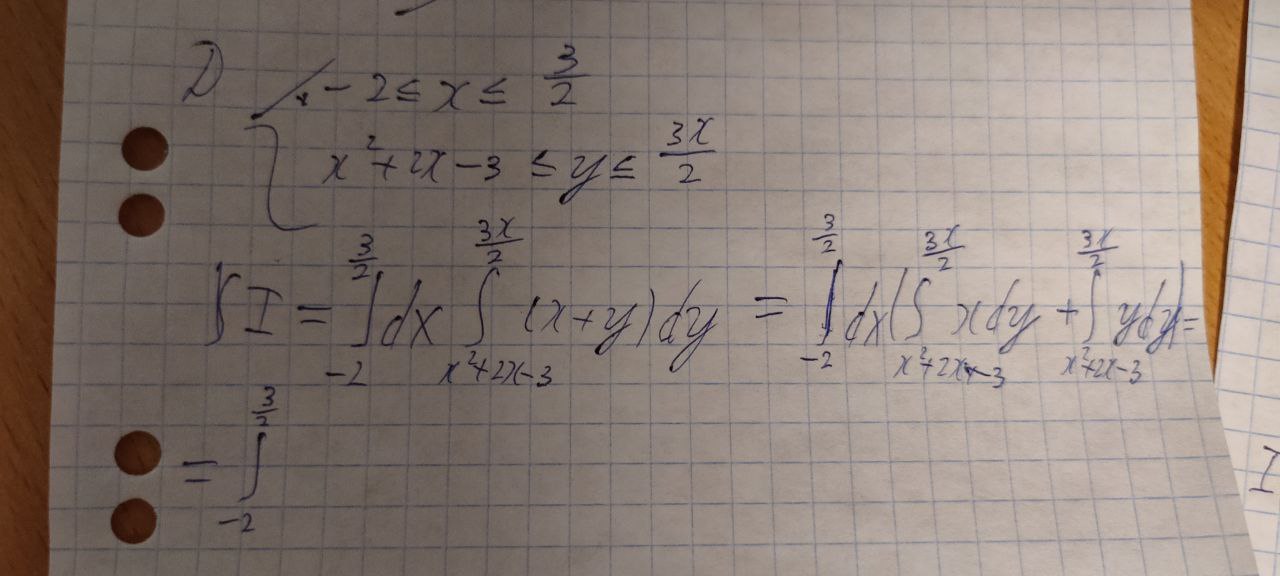 D
-2 ≤ x ≤ 3/2
x²+2x-3 ≤ y ≤ 3x/2
I = ∫_{-2}^{3/2} dx ∫_{x²+2x-3}^{3x/2} (x+y)dy = ∫_{-2}^{3/2} dx(∫_{x²+2x-3}^{3x/2} xdy + ∫_{x²+2x-3}^{3x/2} ydy) =
= ∫_{-2}^{3/2}
I